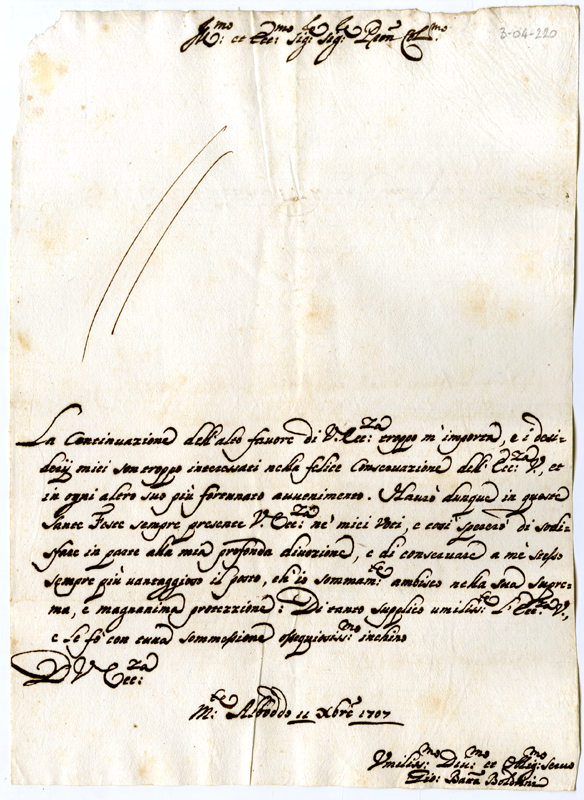 Ill.mo et Ecc.mo Sig.re Sig.re Pron Col.mo
3-04-220
La Continuazione dell'alto favore di V. Ecc:za troppo m'importa, e i desi-
derij miei son troppo interessati nella felice Conservazione dell'Ecc:za V., et
in ogni altro suo più fortunato avvenimento. Havrò dunque in queste
Sante Feste sempre presente V. Ecc:za ne' miei Voti, e così spererò di sodis-
fare in parte alla mia profonda divozione, e di conservare a mè stesso
sempre più vantaggioso il posto, ch'io sommam:te ambisco nella sua supre-
ma, e magnanima protezzione: Di tanto supplico umiliss:te l'Ecc:za V.,
e le fò con tutta sommessione ossequiosiss:mo inchino
D V Ecc:za
M:te 11 Xbre 1707
Umiliss:mo Dev:mo et Obblig:mo Servo
Gio: Batta